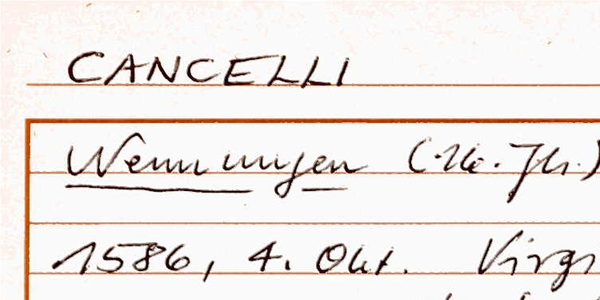 CANCELLI
Nennungen (16. Jh.)
1586, 4. Okt. Virgi